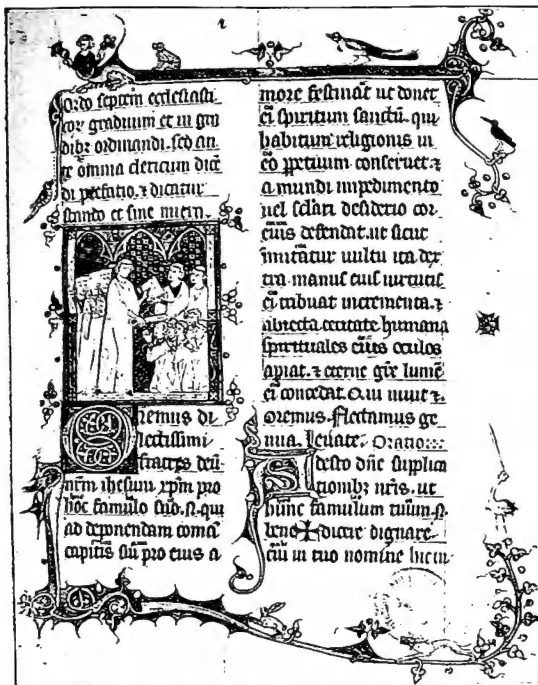 1
Ordo septem ecclesiasti
cor graduum et in gra
dibꝫ ordinandi. sed an
te omnia clericum dicē
di pͤfatio. ⁊ dicatur
stando et sine mitra.
Oremus di
lectissimi
fratres deū
nr̄m ihesum xp̄m pro
hoc famulo suo .N. qui
ad deponendam comā
capitis sui pro eius a
more festinat ut donet
ei spiritum sanctū. qui
habitum religionis in
eo ꝑpetuum conseruet ⁊
a mundi impedimento
uel sclari desiderio cor
eius defendat. ut sicut
inmutatur uultu ita dex
tra manus eius uirtutis
ei tribuat incrementa. ⁊
abiecta cecitate humana
spirituales eius oculos
apiat. ⁊ eterne gr̄e lumē
ei concedat. Qui uiuit ⁊.
oremus. Flectamus ge
nua. Leuate. Oratio
Adesto dn̄e supplica
tionibꝫ nr̄is. ut
hūnc famulum tuum .N.
bene✠dicere dignare.
cui in tuo nomine